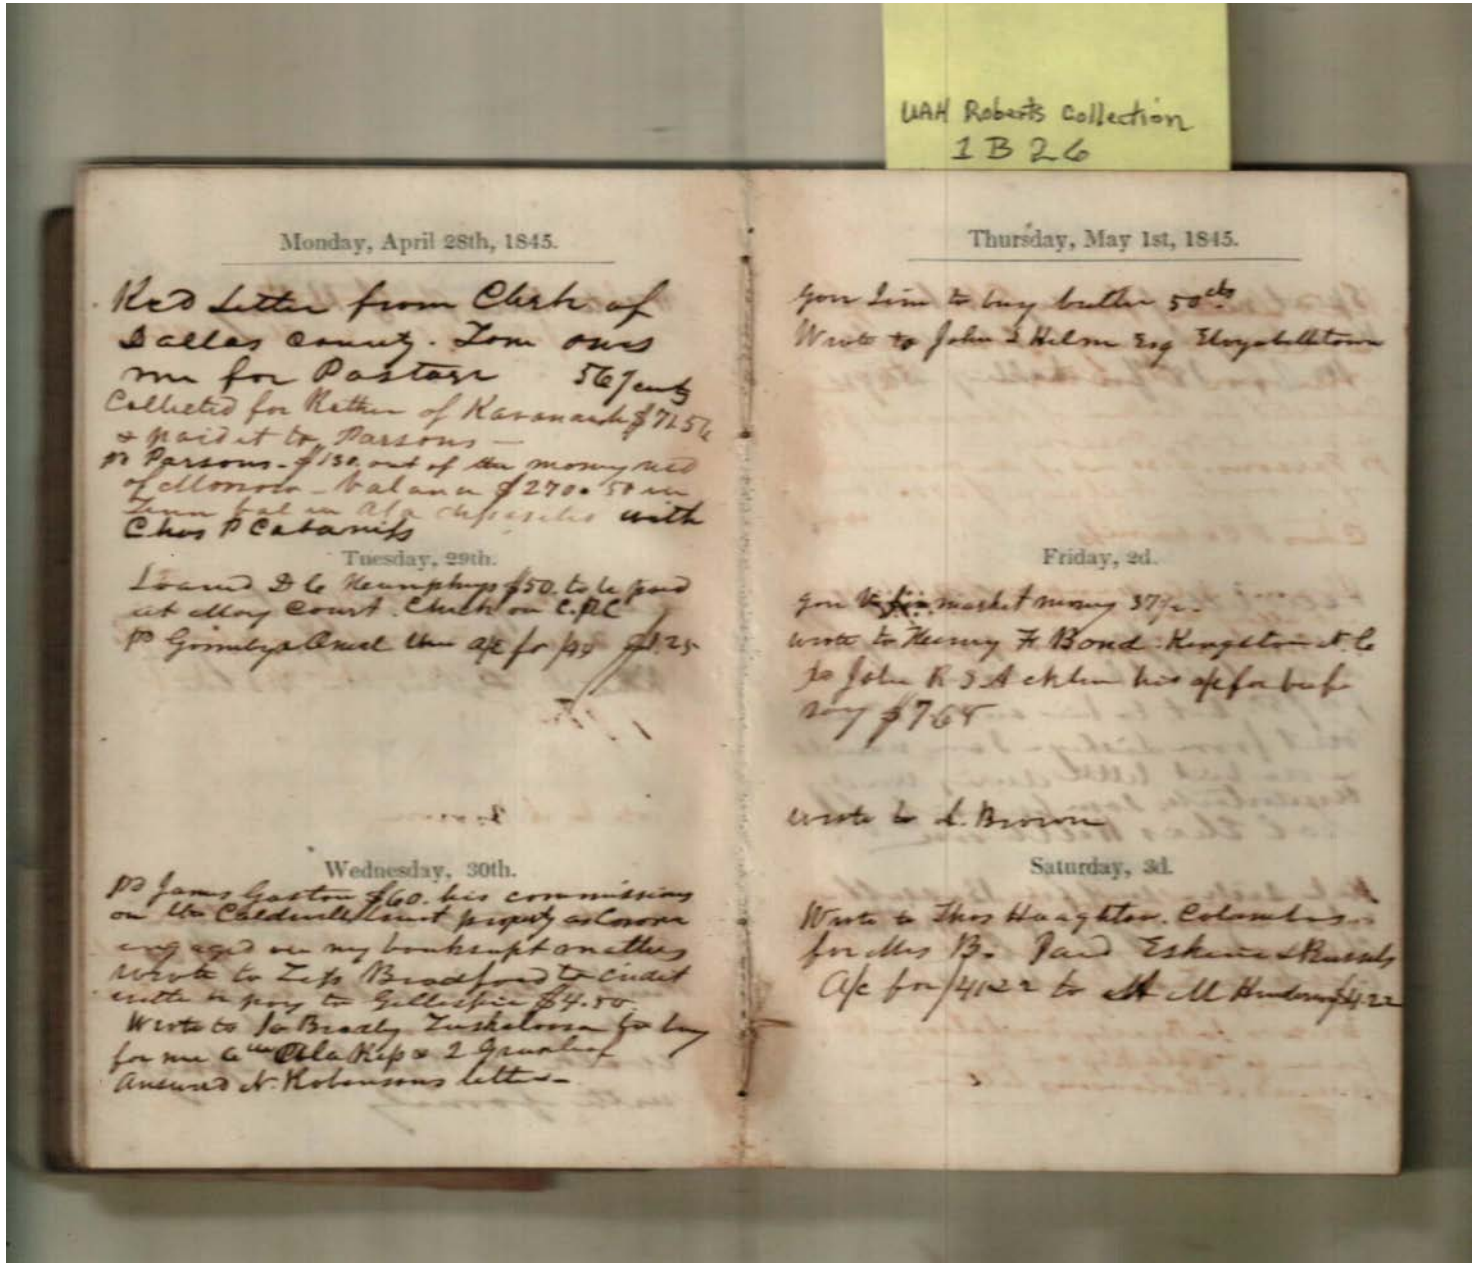 UAH Roberts Collection
1 B 26
Monday, April 28th, 1845.
Recd Letter from Clerk of
Dallas County. Tom owes
me for Postage 56/ cents
Collected for Rather of Kavanaugh $71.56
& paid it to Parsons —
pd Parsons - $130. out of the money recd
of Morrow - balance $270.50 in
Tenn bal in Ala deposited with
Chas P Cabaniss
Tuesday, 29th.
Loaned D C Humphreys $50. to be paid
at May Court. Check on C.P.C
pd a/c for $1.25
Wednesday, 30th.
pd James Gaston $60. his commissions
on the Caldwell trust property
engaged in my bankrupt matters
Wrote to Bradford to
pay to Gillespie $4.50.
Wrote to Jo Bradly Tuskaloosa to buy
for me 6 Ala Reps & 2 Greenleaf
Answd N. Robinsons letter —
Thursday, May 1st, 1845.
gave Jim to buy butter 50 cts
Wrote to John L Helm Esq Elizabethtown
Friday, 2d.
gave market money 37/
wrote to Henry F Bond. Kingston N. C
to John R S Acklen his a/c for beef
say $7.68
wrote to L. Brown
Saturday, 3d.
Wrote to Thos Haughton. Columbus
for Mrs B. Paid Erskine & Russels
A/c for /41.22 to